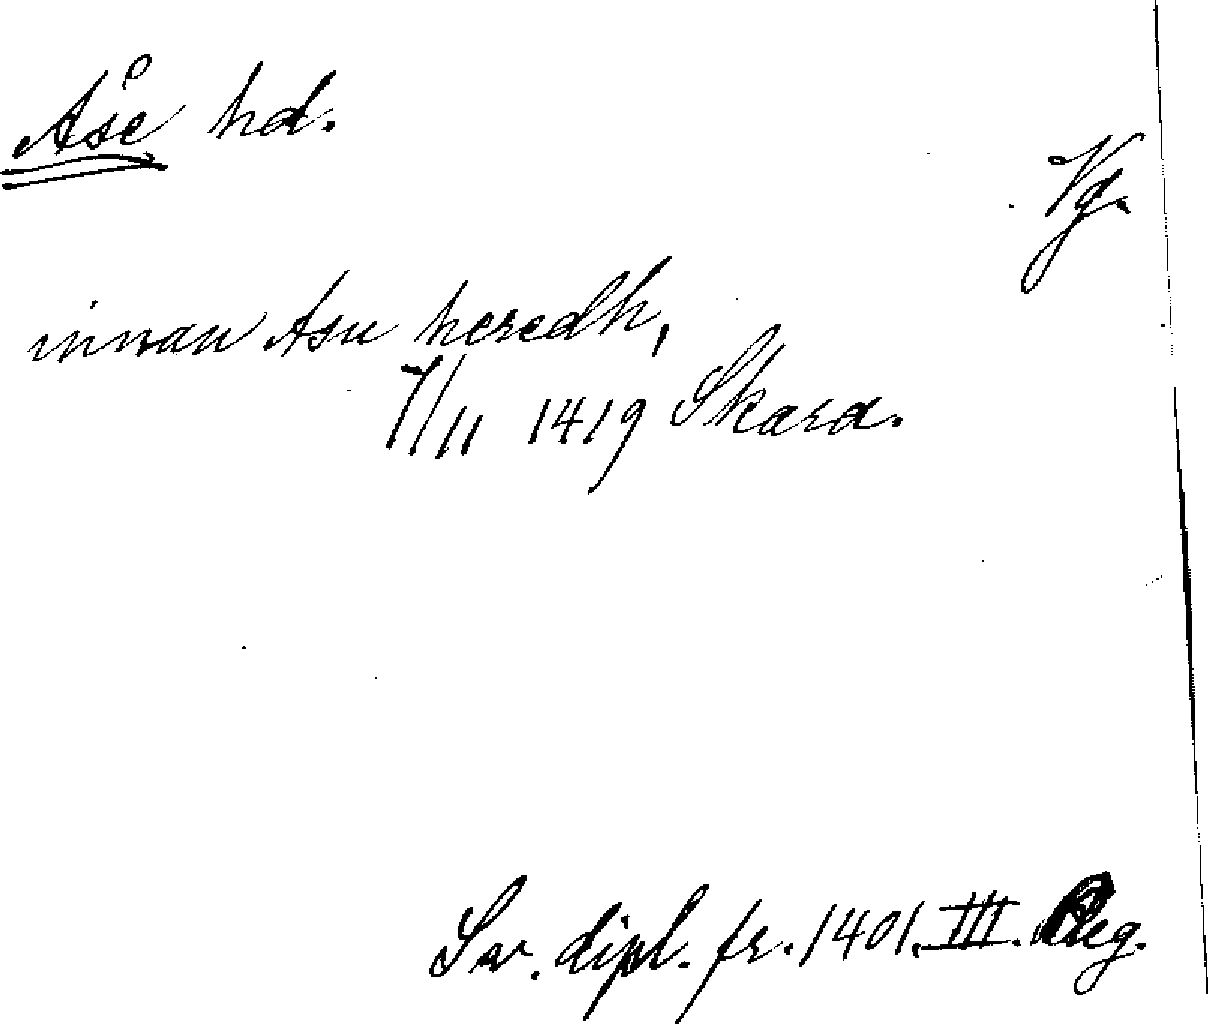 Åse hd.
Vg.
innan Asu heredh,
7/11 1419 Skara.
Sv. dipl. fr. 1401. III. Reg.